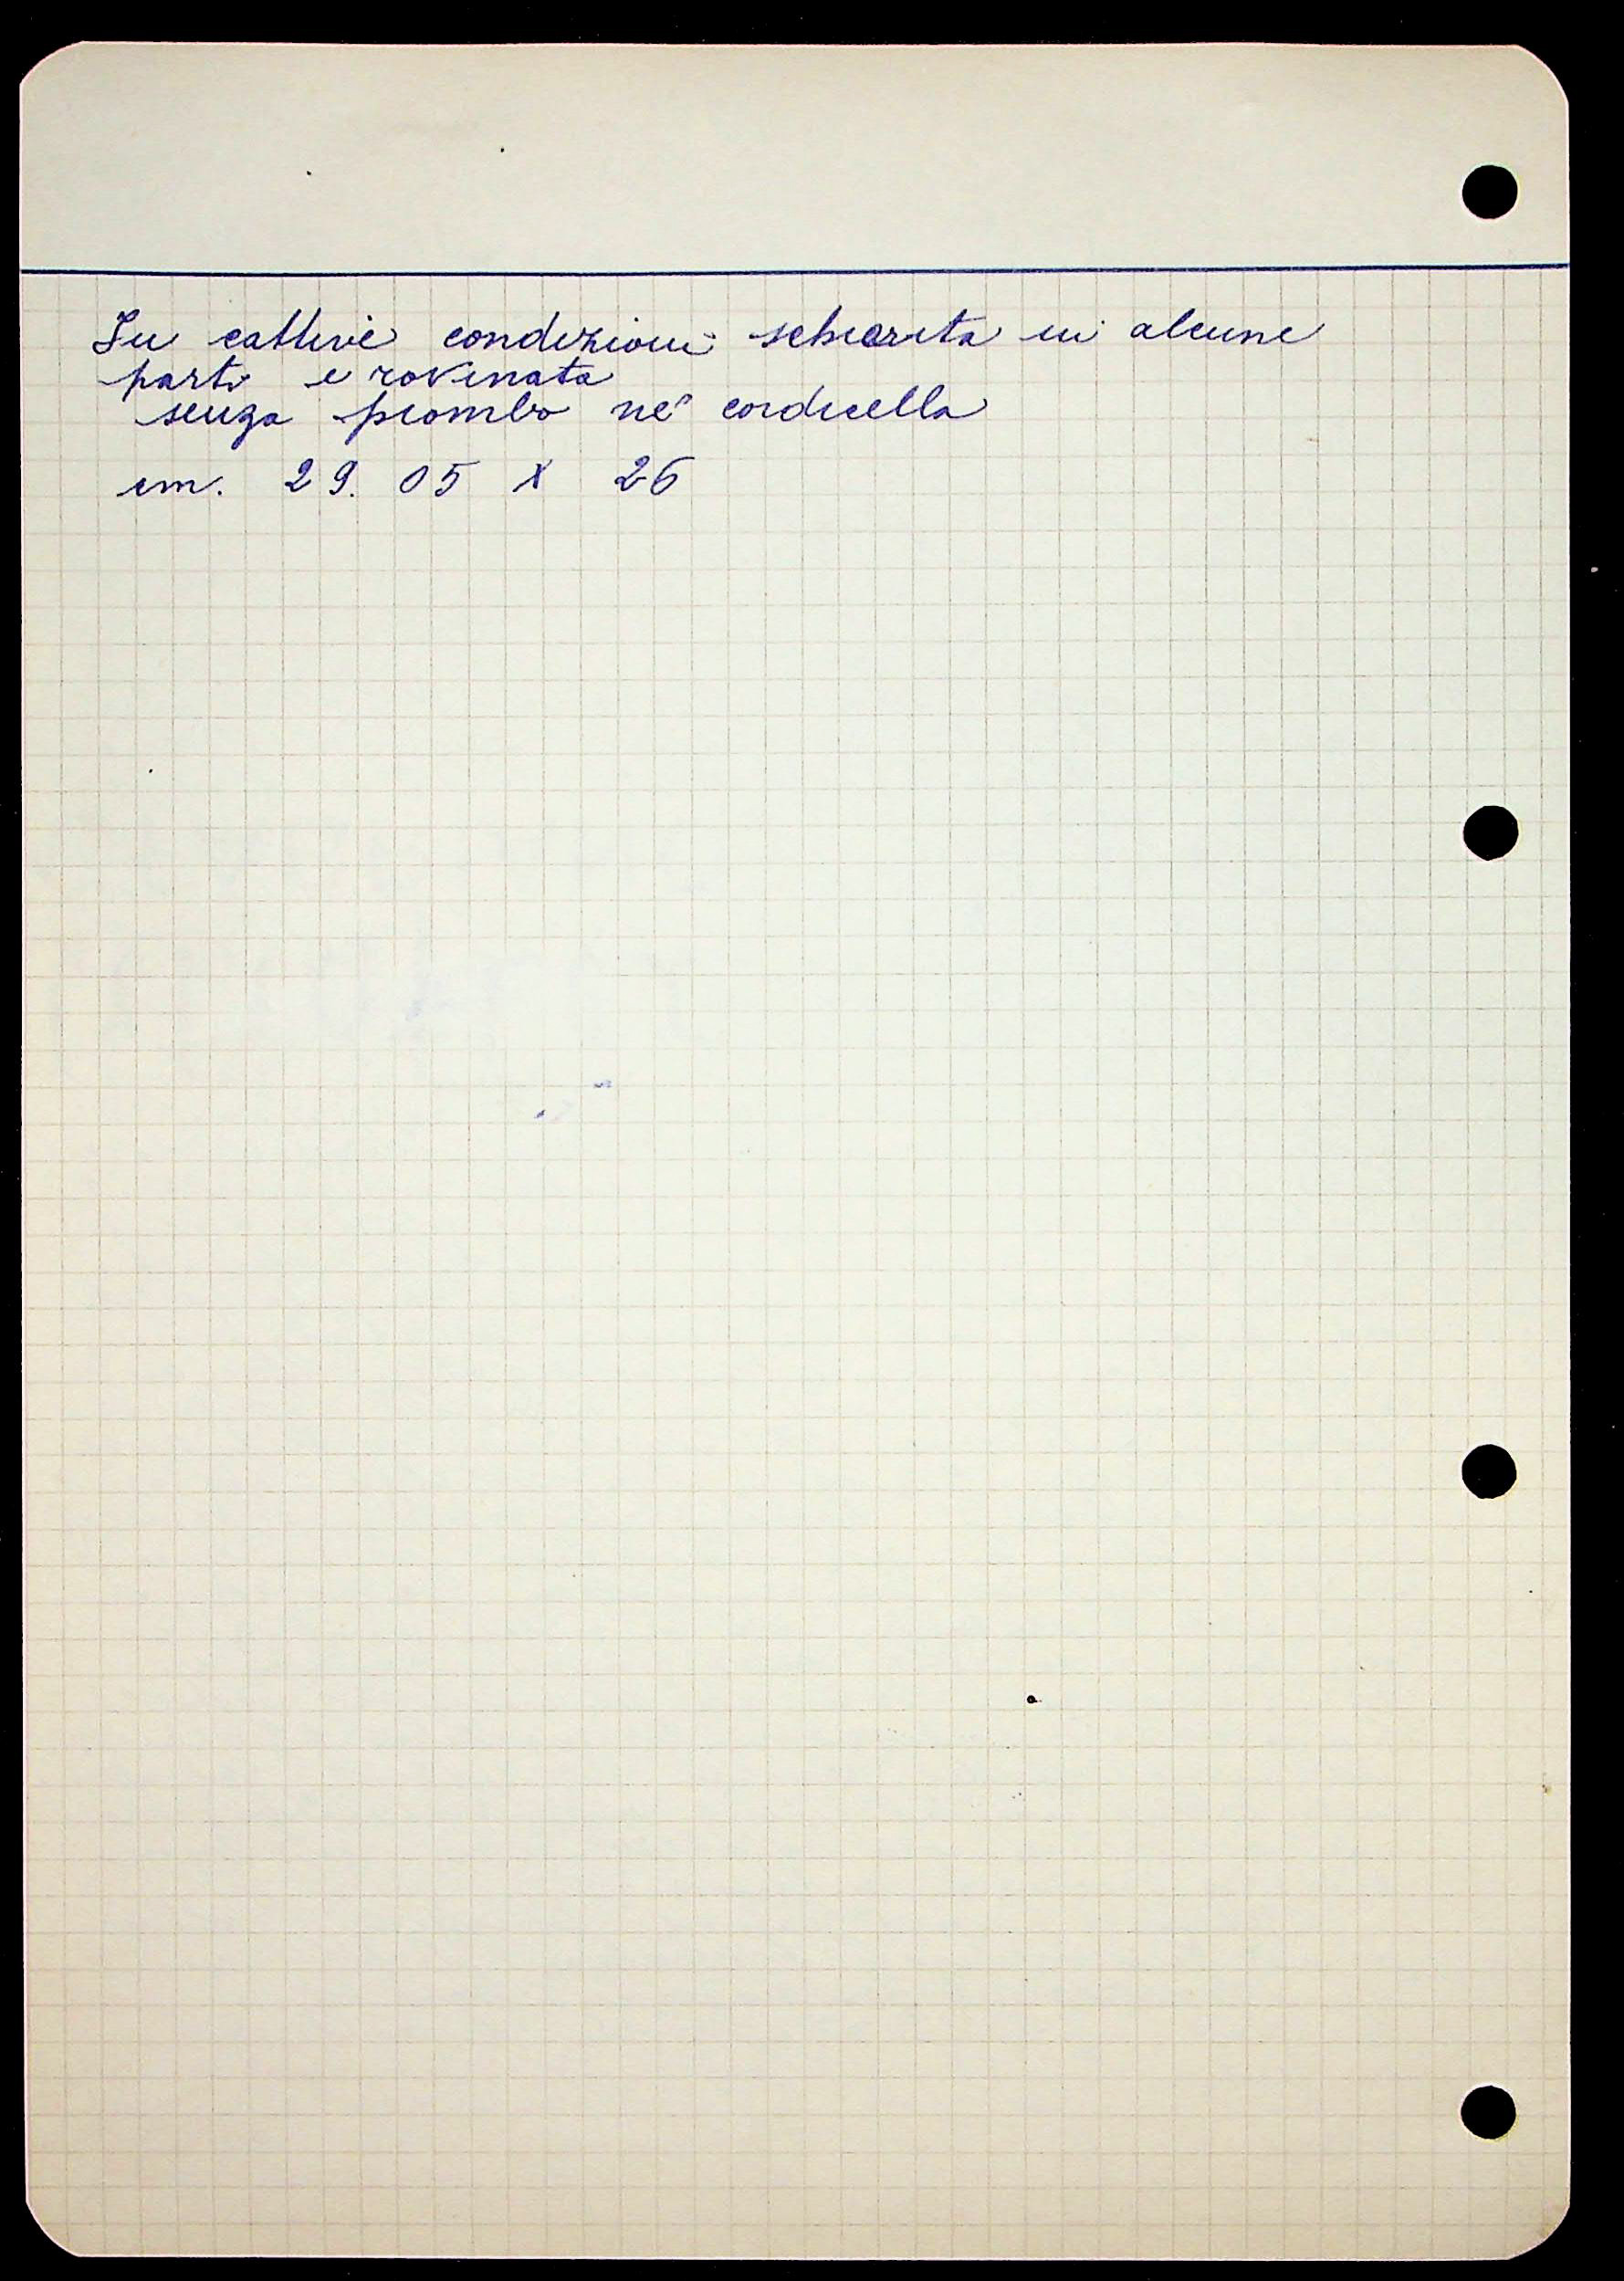 In cattive condizioni schiarita in alcune
parti e rovinata
senza piombo nè cordicella
cm. 29.05 x 26